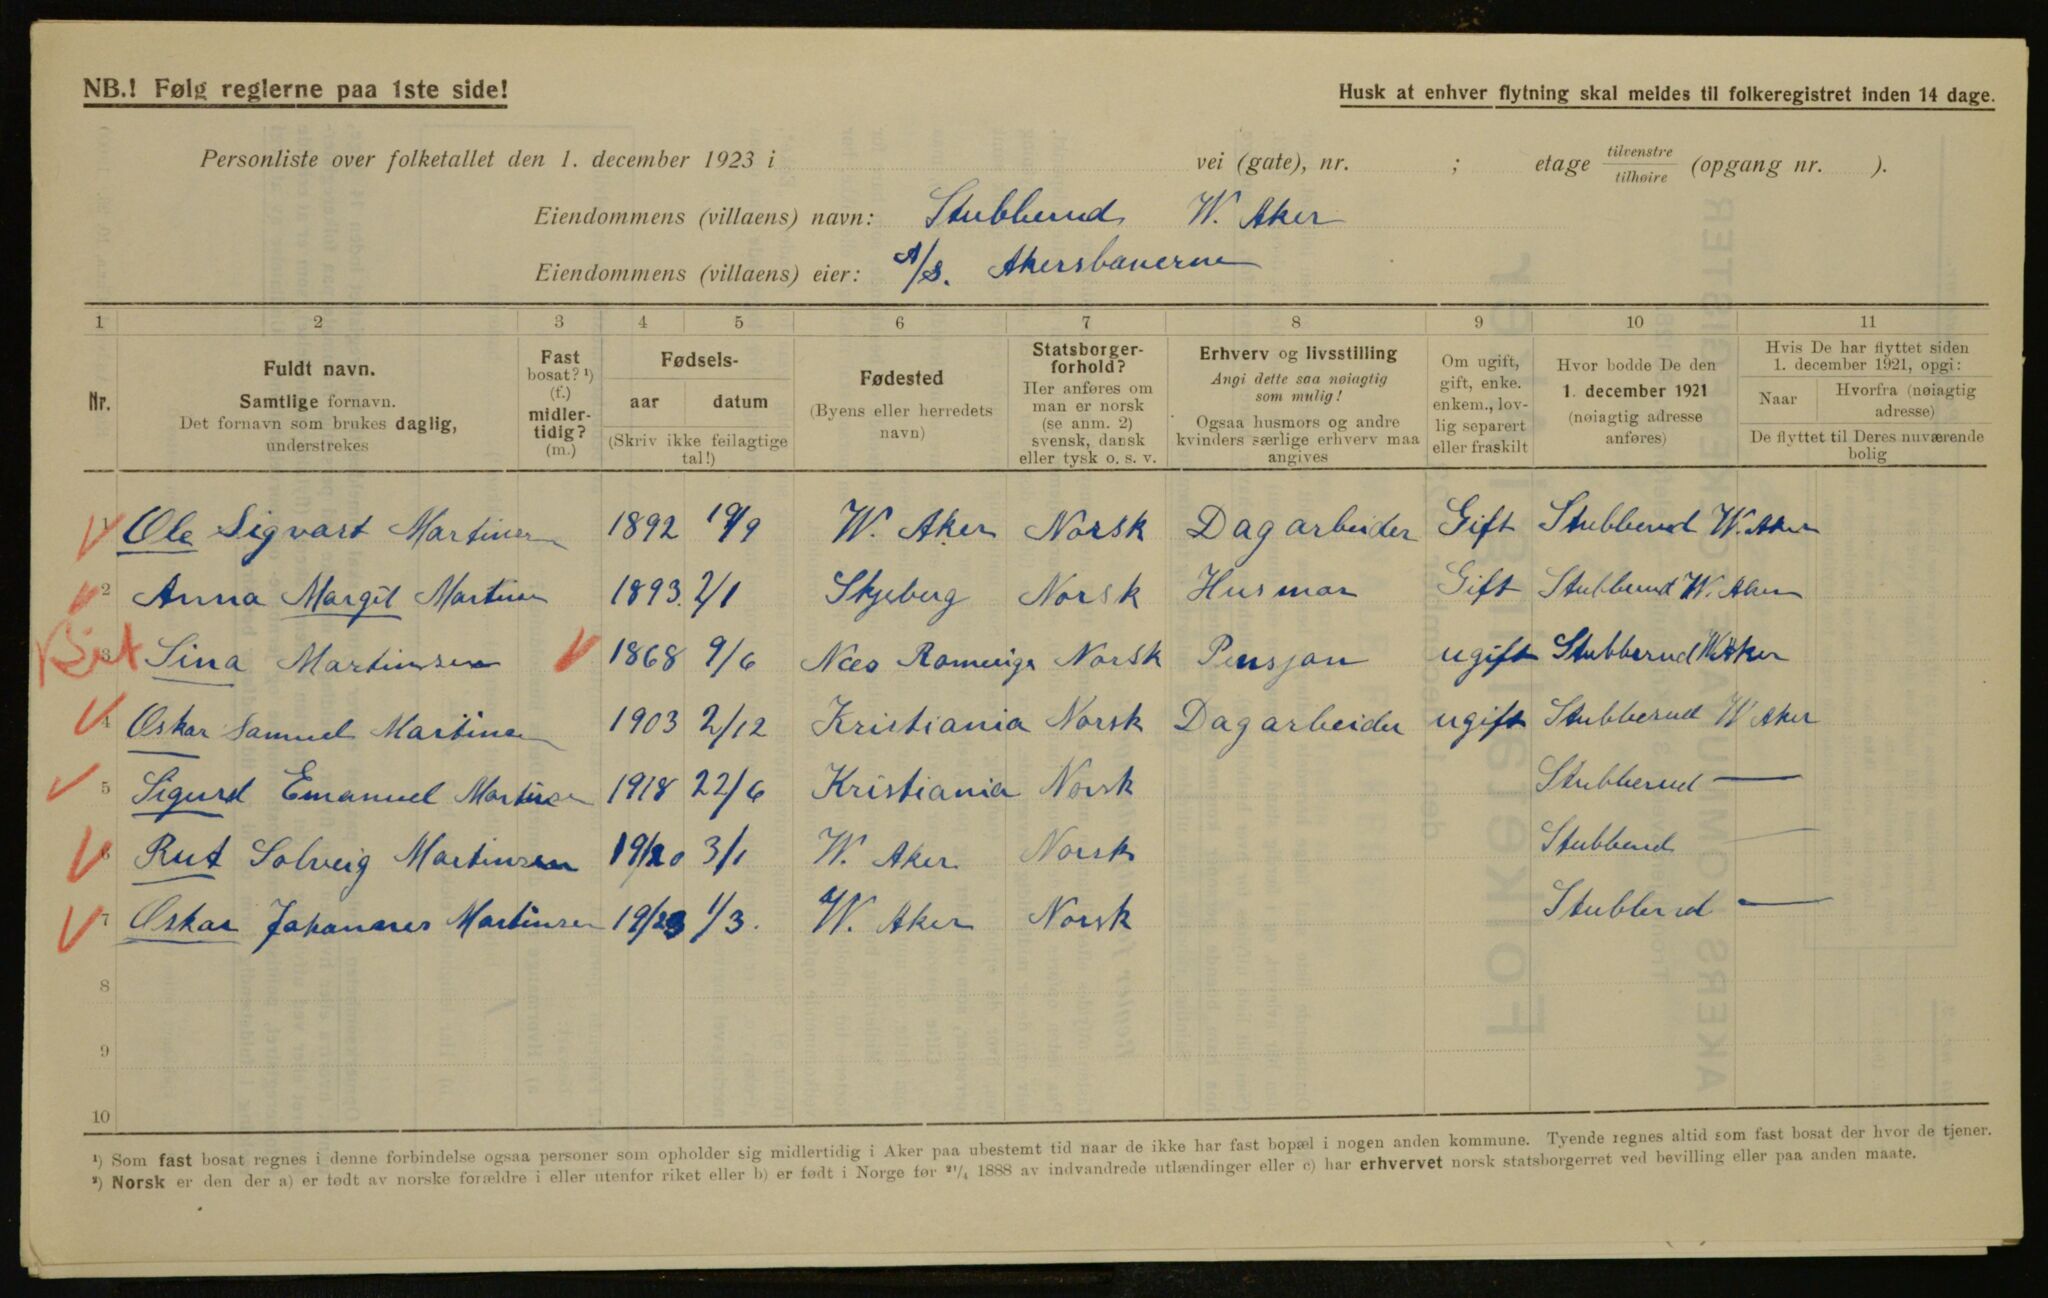 NB.! Følg reglerne paa 1ste side!
Husk at enhver flytning skal meldes til folkeregistret inden 14 dage.
Personliste over folketallet den 1. december 1923 i vei (gate), nr. ; etage tilvenstre/tilhøire (opgang nr. ).
Eiendommens (villaens) navn: Stubberud W. Aker
Eiendommens (villaens) eier: A/S. Akersbanerne
1 2 3 4 5 6 7 8 9 10 11
Nr.
Fuldt navn.
Samtlige fornavn.
Det fornavn som brukes daglig,
understrekes
Fast
bosat? ¹)
(f.)
midler-
tidig?
(m.)
Fødsels-
aar datum
(Skriv ikke feilagtige
tal!)
Fødested
(Byens eller herredets
navn)
Statsborger-
forhold?
Her anføres om
man er norsk
(se anm. 2)
svensk, dansk
eller tysk o. s. v.
Erhverv og livsstilling
Angi dette saa nøiagtig
som mulig!
Ogsaa husmors og andre
kvinders særlige erhverv maa
angives
Om ugift,
gift, enke.
enkem., lov-
lig separert
eller fraskilt
Hvor bodde De den
1. december 1921
(nøiagtig adresse
anføres)
Hvis De har flyttet siden
1. december 1921, opgi:
Naar Hvorfra (nøiagtig
adresse)
De flyttet til Deres nuværende
bolig
1 Ole Sigvart Martinsen 1892 19/9 W. Aker Norsk Dagarbeider Gift Stubberud W. Aker
2 Anna Margit Martinsen 1893. 2/1 Skjeberg Norsk Husmor Gift Stubberud W. Aker
3 Sina Martinsen 1868 9/6 Næs Romerige Norsk Pensjon ugift Stubberud W. Aker
4 Oskar Samuel Martinsen 1903 2/12 Kristiania Norsk Dagarbeider ugift Stubberud W Aker
5 Sigurd Emanuel Martinsen 1918 22/6 Kristiania Norsk Stubberud —
6 Rut Solveig Martinsen 19/20 3/1 W. Aker Norsk Stubberud —
7 Oskar Johannes Martinsen 19/23 1/3. W. Aker Norsk Stubberud —
8
9
10
¹) Som fast bosat regnes i denne forbindelse ogsaa personer som opholder sig midlertidig i Aker paa ubestemt tid naar de ikke har fast bopæl i nogen anden kommune. Tyende regnes altid som fast bosat der hvor de tjener.
²) Norsk er den der a) er født av norske forældre i eller utenfor riket eller b) er født i Norge før ²¹/₄ 1888 av indvandrede utlændinger eller c) har erhvervet norsk statsborgerret ved bevilling eller paa anden maate.